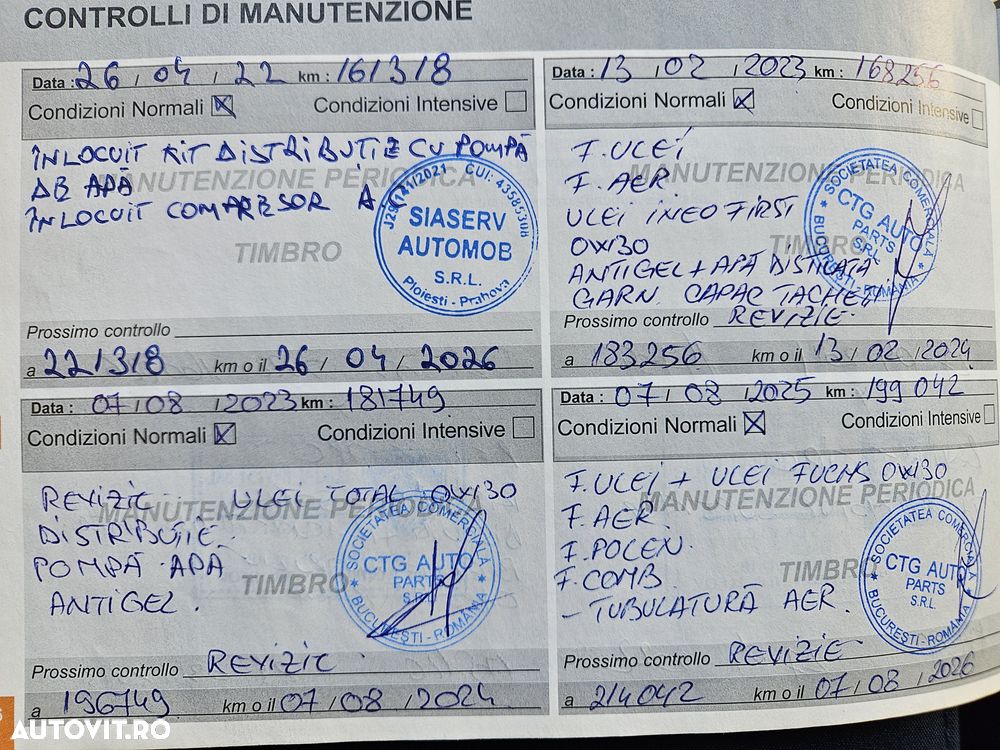 CONTROLLI DI MANUTENZIONE
Data : 26 / 04 / 22 km : 161318
Condizioni Normali Condizioni Intensive
ÎNLOCUIT KIT DISTRIBUȚIE CU POMPĂ
DE APĂ
MANUTENZIONE PERIODICA
ÎNLOCUIT COMPRESOR A.C
TIMBRO
J29/141/2021 CUI: 43585308
SIASERV
AUTOMOB
S.R.L.
Ploiesti - Prahova
Prossimo controllo
a 221318 km o il 26 / 04 / 2026
Data : 13 / 02 / 2023 km : 168256
Condizioni Normali Condizioni Intensive
F. ULEI
F. AER
MANUTENZIONE PERIODICA
ULEI INEO FIRST
0W30
TIMBRO
ANTIGEL + APĂ DISTILATĂ
GARN. CAPAC TACHEȚI
SOCIETATEA COMERCIALĂ
CTG AUTO
PARTS
SRL
BUCUREȘTI - ROMÂNIA
Prossimo controllo REVIZIE
a 183256 km o il 13 / 02 / 2024
Data : 07 / 08 / 2023 km : 181749
Condizioni Normali Condizioni Intensive
REVIZIE ULEI TOTAL 0W30
MANUTENZIONE PERIODICA
DISTRIBUȚIE
POMPĂ APĂ
TIMBRO
ANTIGEL.
SOCIETATEA COMERCIALĂ
CTG AUTO
PARTS
S.R.L.
BUCUREȘTI - ROMÂNIA
Prossimo controllo REVIZIE
a 196749 km o il 07 / 08 / 2024
Data : 07 / 08 / 2025 km : 199 042
Condizioni Normali Condizioni Intensive
F. ULEI + ULEI FUCHS 0W30
MANUTENZIONE PERIODICA
F. AER
F. POLEN
TIMBRO
F. COMB
- TUBULATURĂ AER.
SOCIETATEA COMERCIALĂ
CTG AUTO
PARTS
S.R.L.
BUCUREȘTI - ROMÂNIA
Prossimo controllo REVIZIE
a 214042 km o il 07 / 08 / 2026
AUTOVIT.RO